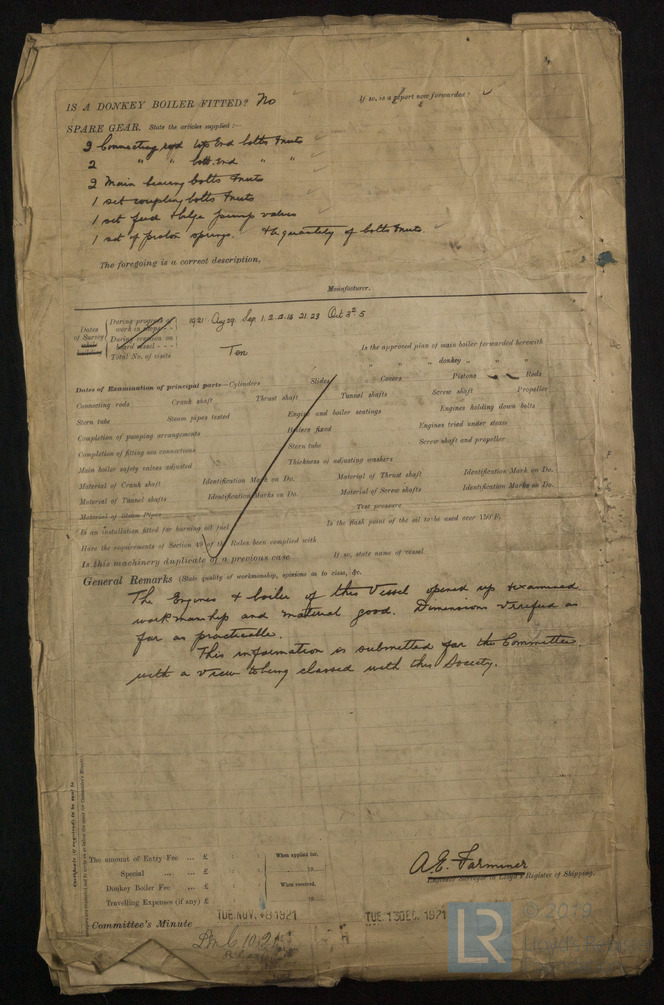 IS A DONKEY BOILER FITTED? No If so, is a report now forwarded? ✓
SPARE GEAR. State the articles supplied:—
2 Connecting rod top End bolts & nuts ✓
2 " " bott. End " " ✓
2 Main bearing bolts & nuts ✓
1 set coupling bolts & nuts ✓
1 set feed & bilge pump valves ✓
1 set of piston springs. & a quantity of bolts & nuts. ✓
The foregoing is a correct description,
Manufacturer.
Dates of Survey while building
During progress of work in shops - -
During erection on board vessel - - -
Total No. of visits
1921 Aug 29. Sep. 1. 2. 12. 16 21. 23 Oct 3rd 5
Ten
Is the approved plan of main boiler forwarded herewith
" " " donkey " " "
Dates of Examination of principal parts—Cylinders Slides Covers Pistons Rods
Connecting rods Crank shaft Thrust shaft Tunnel shafts Screw shaft Propeller
Stern tube Steam pipes tested Engine and boiler seatings Engines holding down bolts
Completion of pumping arrangements Boilers fixed Engines tried under steam
Completion of fitting sea connections Stern tube Screw shaft and propeller
Main boiler safety valves adjusted Thickness of adjusting washers
Material of Crank shaft Identification Mark on Do. Material of Thrust shaft Identification Mark on Do.
Material of Tunnel shafts Identification Marks on Do. Material of Screw shafts Identification Marks on Do.
Material of Steam Pipes Test pressure
Is an installation fitted for burning oil fuel Is the flash point of the oil to be used over 150°F.
Have the requirements of Section 49 of the Rules been complied with
Is this machinery duplicate of a previous case If so, state name of vessel
General Remarks (State quality of workmanship, opinions as to class, &c.
The Engines & boiler of this Vessel opened up & examined
workmanship and material good. Dimensions verified as
far as practicable.
This information is submitted for the Committee
with a view to being classed with this Society.
The amount of Entry Fee ... £ : : When applied for,
Special ... ... £ : : 19
Donkey Boiler Fee ... £ : : When received,
Travelling Expenses (if any) £ : : 19
A.E. Farminer
Engineer Surveyor to Lloyd's Register of Shipping.
Committee's Minute
TUE. NOV. -8 1921
TUE. 13 DEC. 1921
LR
© 2019